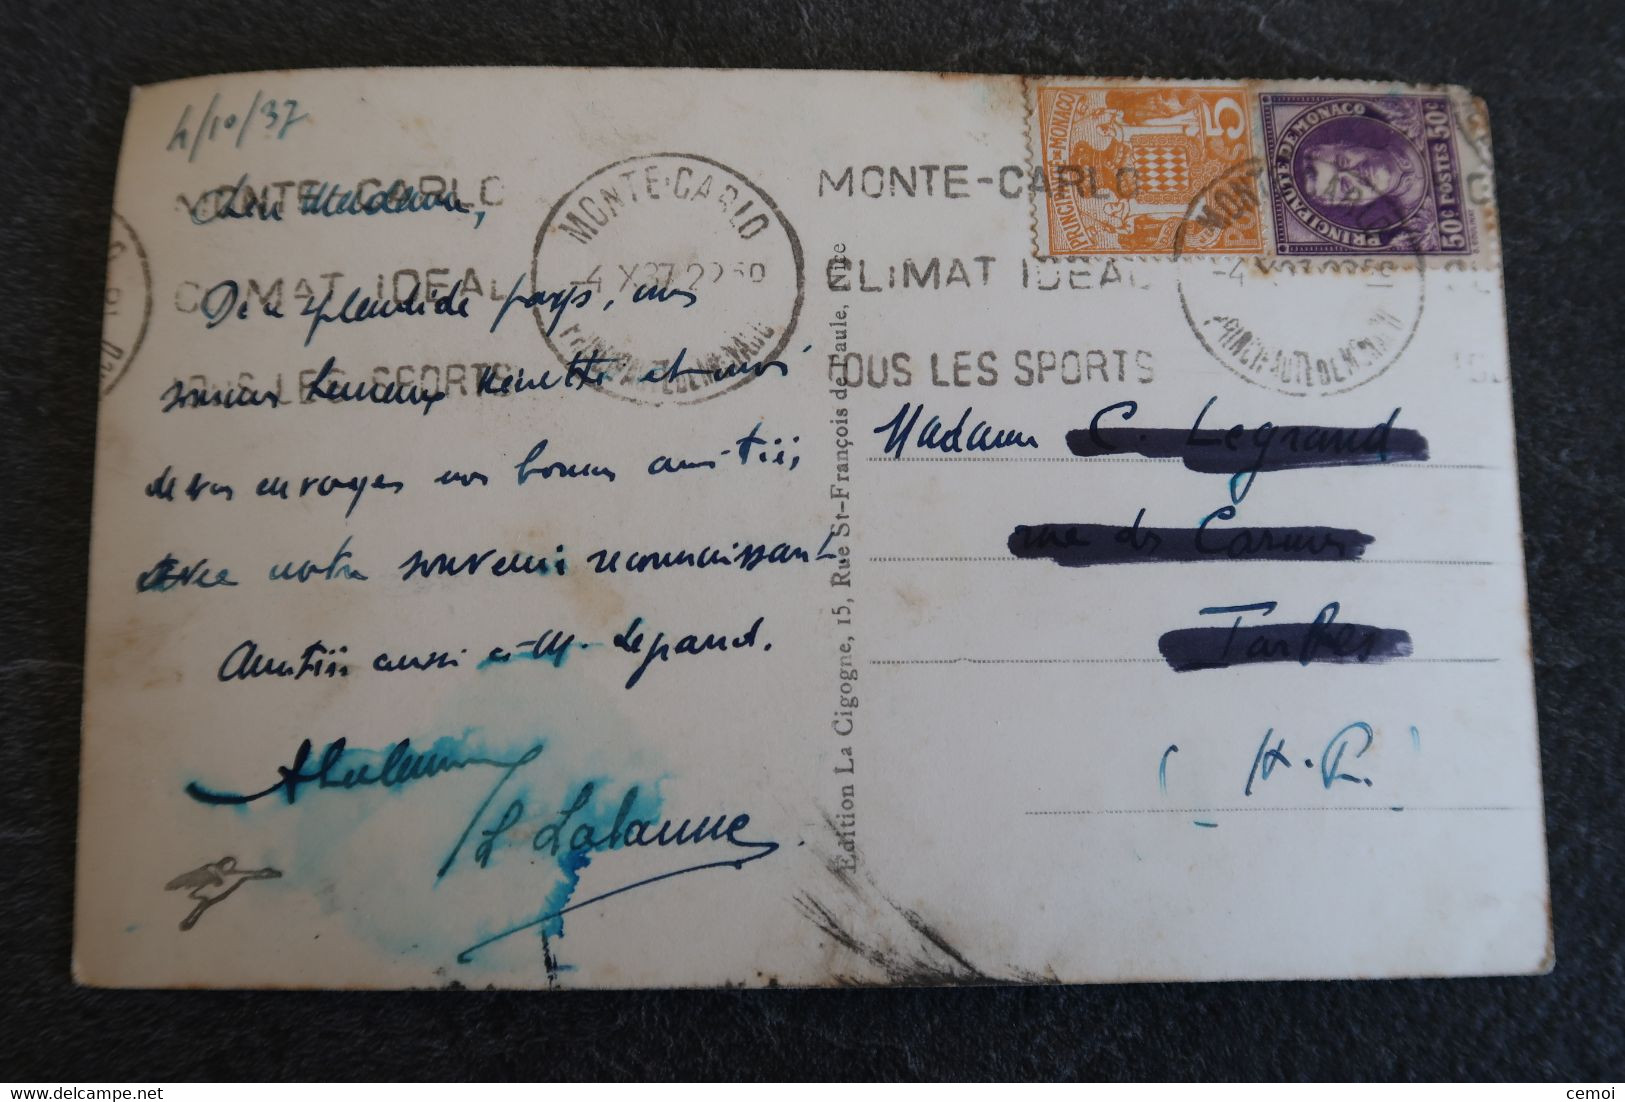 4/10/37
Chère Madame,
De ce splendide pays, nous
sommes heureux Ninette et moi
de vous envoyer nos bonnes amitiés,
avec notre souvenir reconnaissant
Amitiés aussi à M. Legrand.
L Lalanne
MONTE-CARLO
CLIMAT IDEAL
TOUS LES SPORTS
MONTE-CARLO
-4 X 37 22
PRINCIPAUTE DE MONACO
Edition La Cigogne, 15, Rue St-François de Paule, Nice
MONTE-CARLO
CLIMAT IDEAL
TOUS LES SPORTS
MONTE-CARLO
PRINCIPAUTE DE MONACO
PRINCIPAUTÉ DE MONACO
5
PRINCIPAUTE DE MONACO
50c POSTES 50c
Madame C. Legrand
rue des Carmes
Tarbes
(H.P.)
cemoi